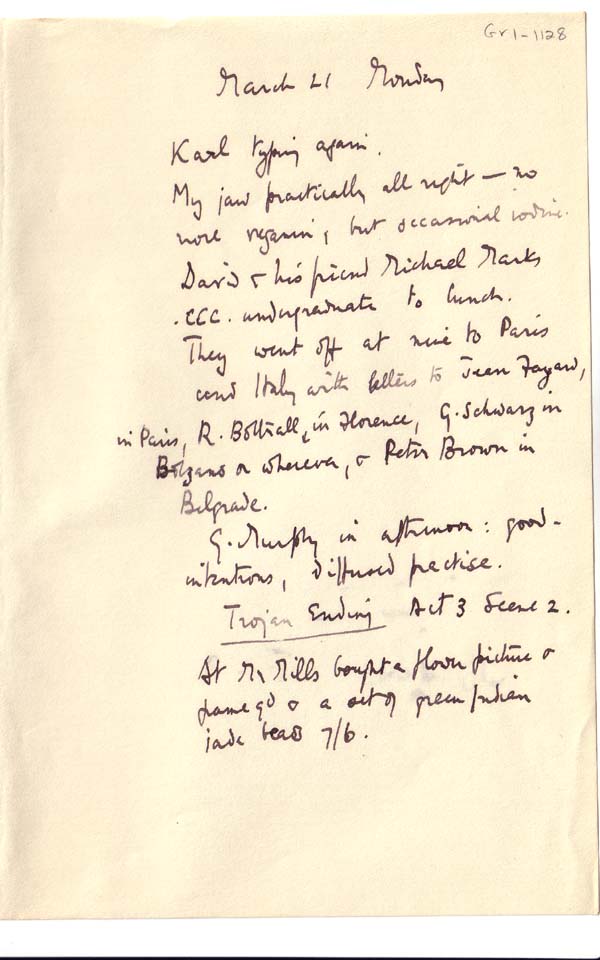 Gr1-1128
March 21 Monday
Karl typing again.
My jaw practically all right — no
more veganin, but occasional iodine.
David & his friend Michael Marks
.CCC. undergraduate to lunch.
They went off at nine to Paris
and Italy with letters to Jean Fayard,
in Paris, R. Bottrall, in Florence, G. Schwarz in
Bolzano or wherever, & Peter Brown in
Belgrade.
G. Murphy in afternoon: good-
intentions, diffused practise.
Trojan Ending Act 3 Scene 2.
At Mr Mills bought a flower picture &
frame 9d & a set of green Indian
jade beads 7/6.